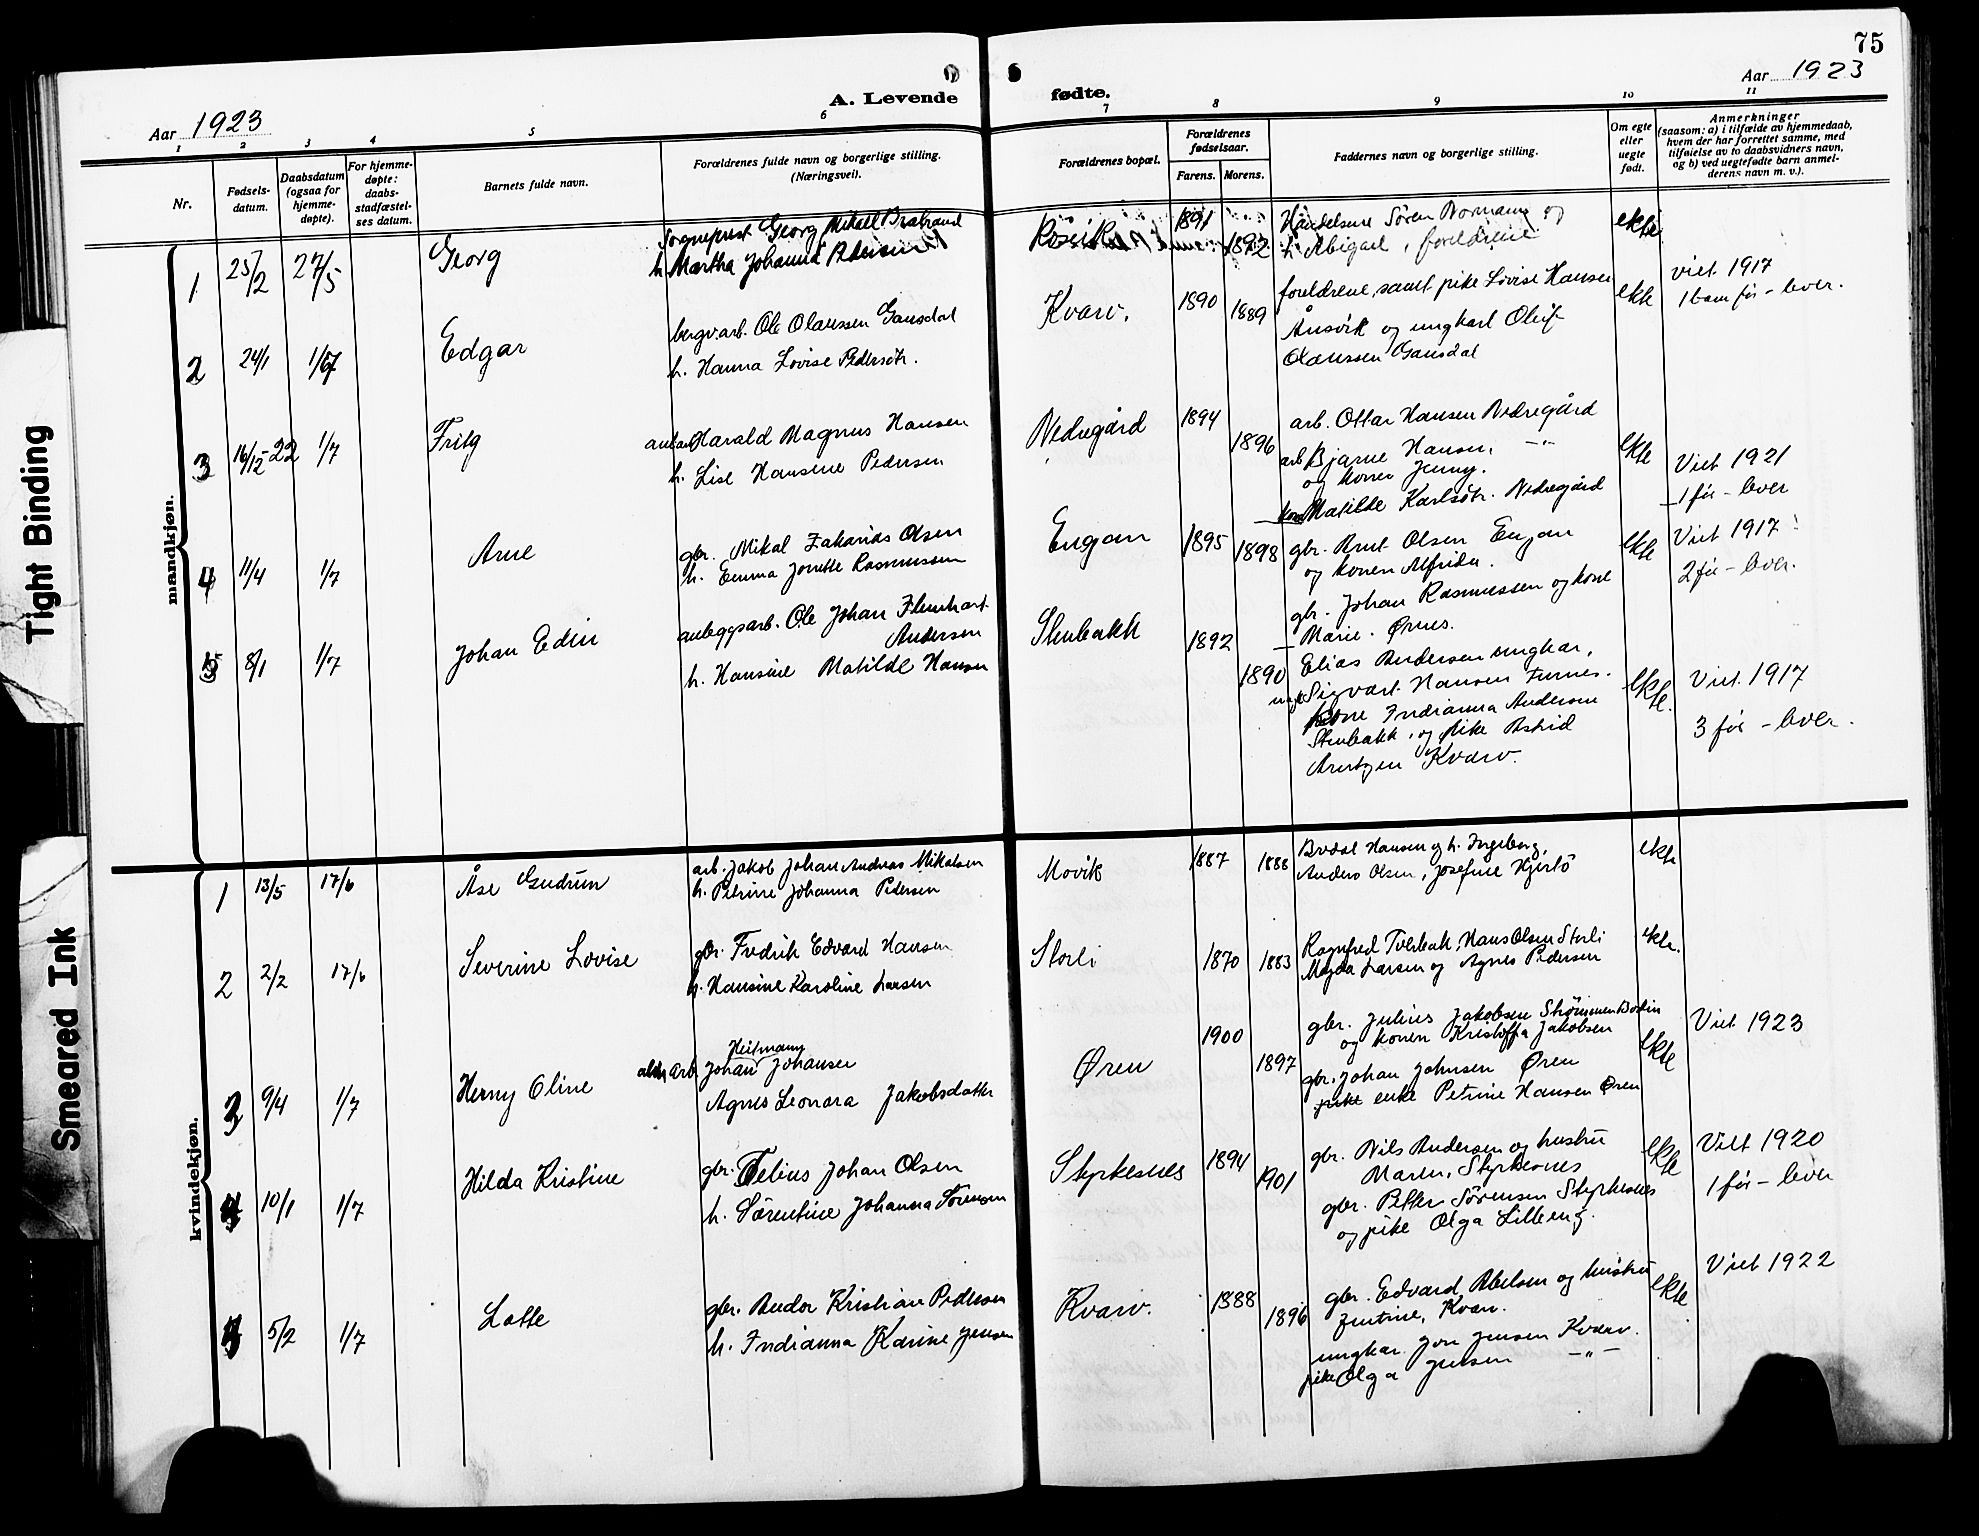 75
Aar 1923
A. Levende
fødte.
Aar 1923
1 2 3 4 5 6 7 8 9 10 11
Nr.
Fødsels-
datum.
Daabsdatum
(ogsaa for
hjemme-
døpte).
For hjemme-
døpte:
daabs-
stadfæstel-
ses datum.
Barnets fulde navn.
Forældrenes fulde navn og borgerlige stilling.
(Næringsvei).
Forældrenes bopæl.
Forældrenes
fødselsaar.
Farens. Morens.
Faddernes navn og borgerlige stilling.
Om egte
eller
uegte
født.
Anmerkninger
(saasom: a) i tilfælde av hjemmedaab,
hvem der har forrettet samme, med
tilføielse av to daabsvidners navn,
og b) ved uegtefødte barn anmel-
derens navn m. v.).
mandkjøn.
1 25/2 27/5 Georg
Sogneprest Georg Mikael
h. Martha Johanna Pedersen
1891 1892
Søren Normann og
h. Abigael, foreldrene
ekte
2 24/1 1/7 Edgar
bergv.arb. Ole Olaussen Gausdal
h. Hanna Lovise Pedersdtr.
Kvarv. 1890 1889
foreldrene, samt pike Lovise Hansen
Ånsvik og ungkarl Oluf
Olaussen Gausdal
ekte
viet 1917
1 barn før - lever.
3 16/12-22 1/7 Fritz
Harald Magnus Hansen
h. Lise Hansine Pedersen
Nedregård 1894 1896
arb. Ottar Hansen Nedregård
arb. Bjarne Hansen, -"-
og konen Jenny.
kone Matilde Karlsdtr. Nedregård
ekte
Viet 1921
1 før - lever
4 11/4 1/7 Arne
gbr. Mikal Zakarias Olsen
h. Emma Jonette Rasmussen
Engan 1895 1898
gbr. Arnt Olsen Engan
og konen Alfrida.
gbr. Johan Rasmussen og kone
Marie. Ørnes.
ekte
Viet 1917
2 før - lever.
5 8/1 1/7 Johan Edin
anleggsarb. Ole Johan
Andersen
h. Hansine Matilde Hansen
Stenbakk 1892 1890
Elias Andersen ungkar,
Sigvart Hansen Furnes.
Kone Indianna Andersen
Stenbakk, og pike Astrid
Arntzen Kvarv.
ekte.
Viet 1917
3 før - lever.
kvindekjøn.
1 13/5 17/6 Åse Gudrun
arb. Jakob Johan Andreas Mikalsen
h. Petrine Johanna Pedersen
Movik 1887 1888
Hansen og h. Ingeborg,
Anders Olsen, Josefine Hjertö
ekte
2 2/2 17/6 Severine Lovise
gbr. Fredrik Edvard Hansen
h. Hansine Karoline Larsen
Storli 1870 1883
Ragnfred Tverbak, Hans Olsen Storli
Magda Larsen og Agnes Pedersen
ekte.
3 9/4 1/7 Herny Oline
Heitmann
arb. Johan Johansen
Agnes Leonora Jakobsdatter
Øren 1900 1897
gbr. Julius Jakobsen Strømmen Bodin
og konen Kristoffa Jakobsen
gbr. Johan Johnsen Øren
pike enke Petrine Hansen Øren
ekte
Viet 1923
4 10/1 1/7 Hilda Kristine
gbr. Johan Olsen
h. Sørentine Johanna Sørensen
Styrkesnes 1894 1901
gbr. Nils Andersen og hustru
Maren, Styrkesnes
gbr. Petter Sørensen Styrkesnes
og pike Olga Lilleeng.
ekte
Viet 1920
1 før - lever
5/2 1/7 Lotte
gbr. Andor Kristian Pedersen
h. Indianna Karine Jensen
Kvarv. 1888 1896
gbr. Edvard Abelsen og hustru
Jentine, Kvarv.
ungkar Jon Jensen Kvarv.
pike Olga Jensen -"-
ekte
Viet 1922
Tight Binding
Smeared Ink